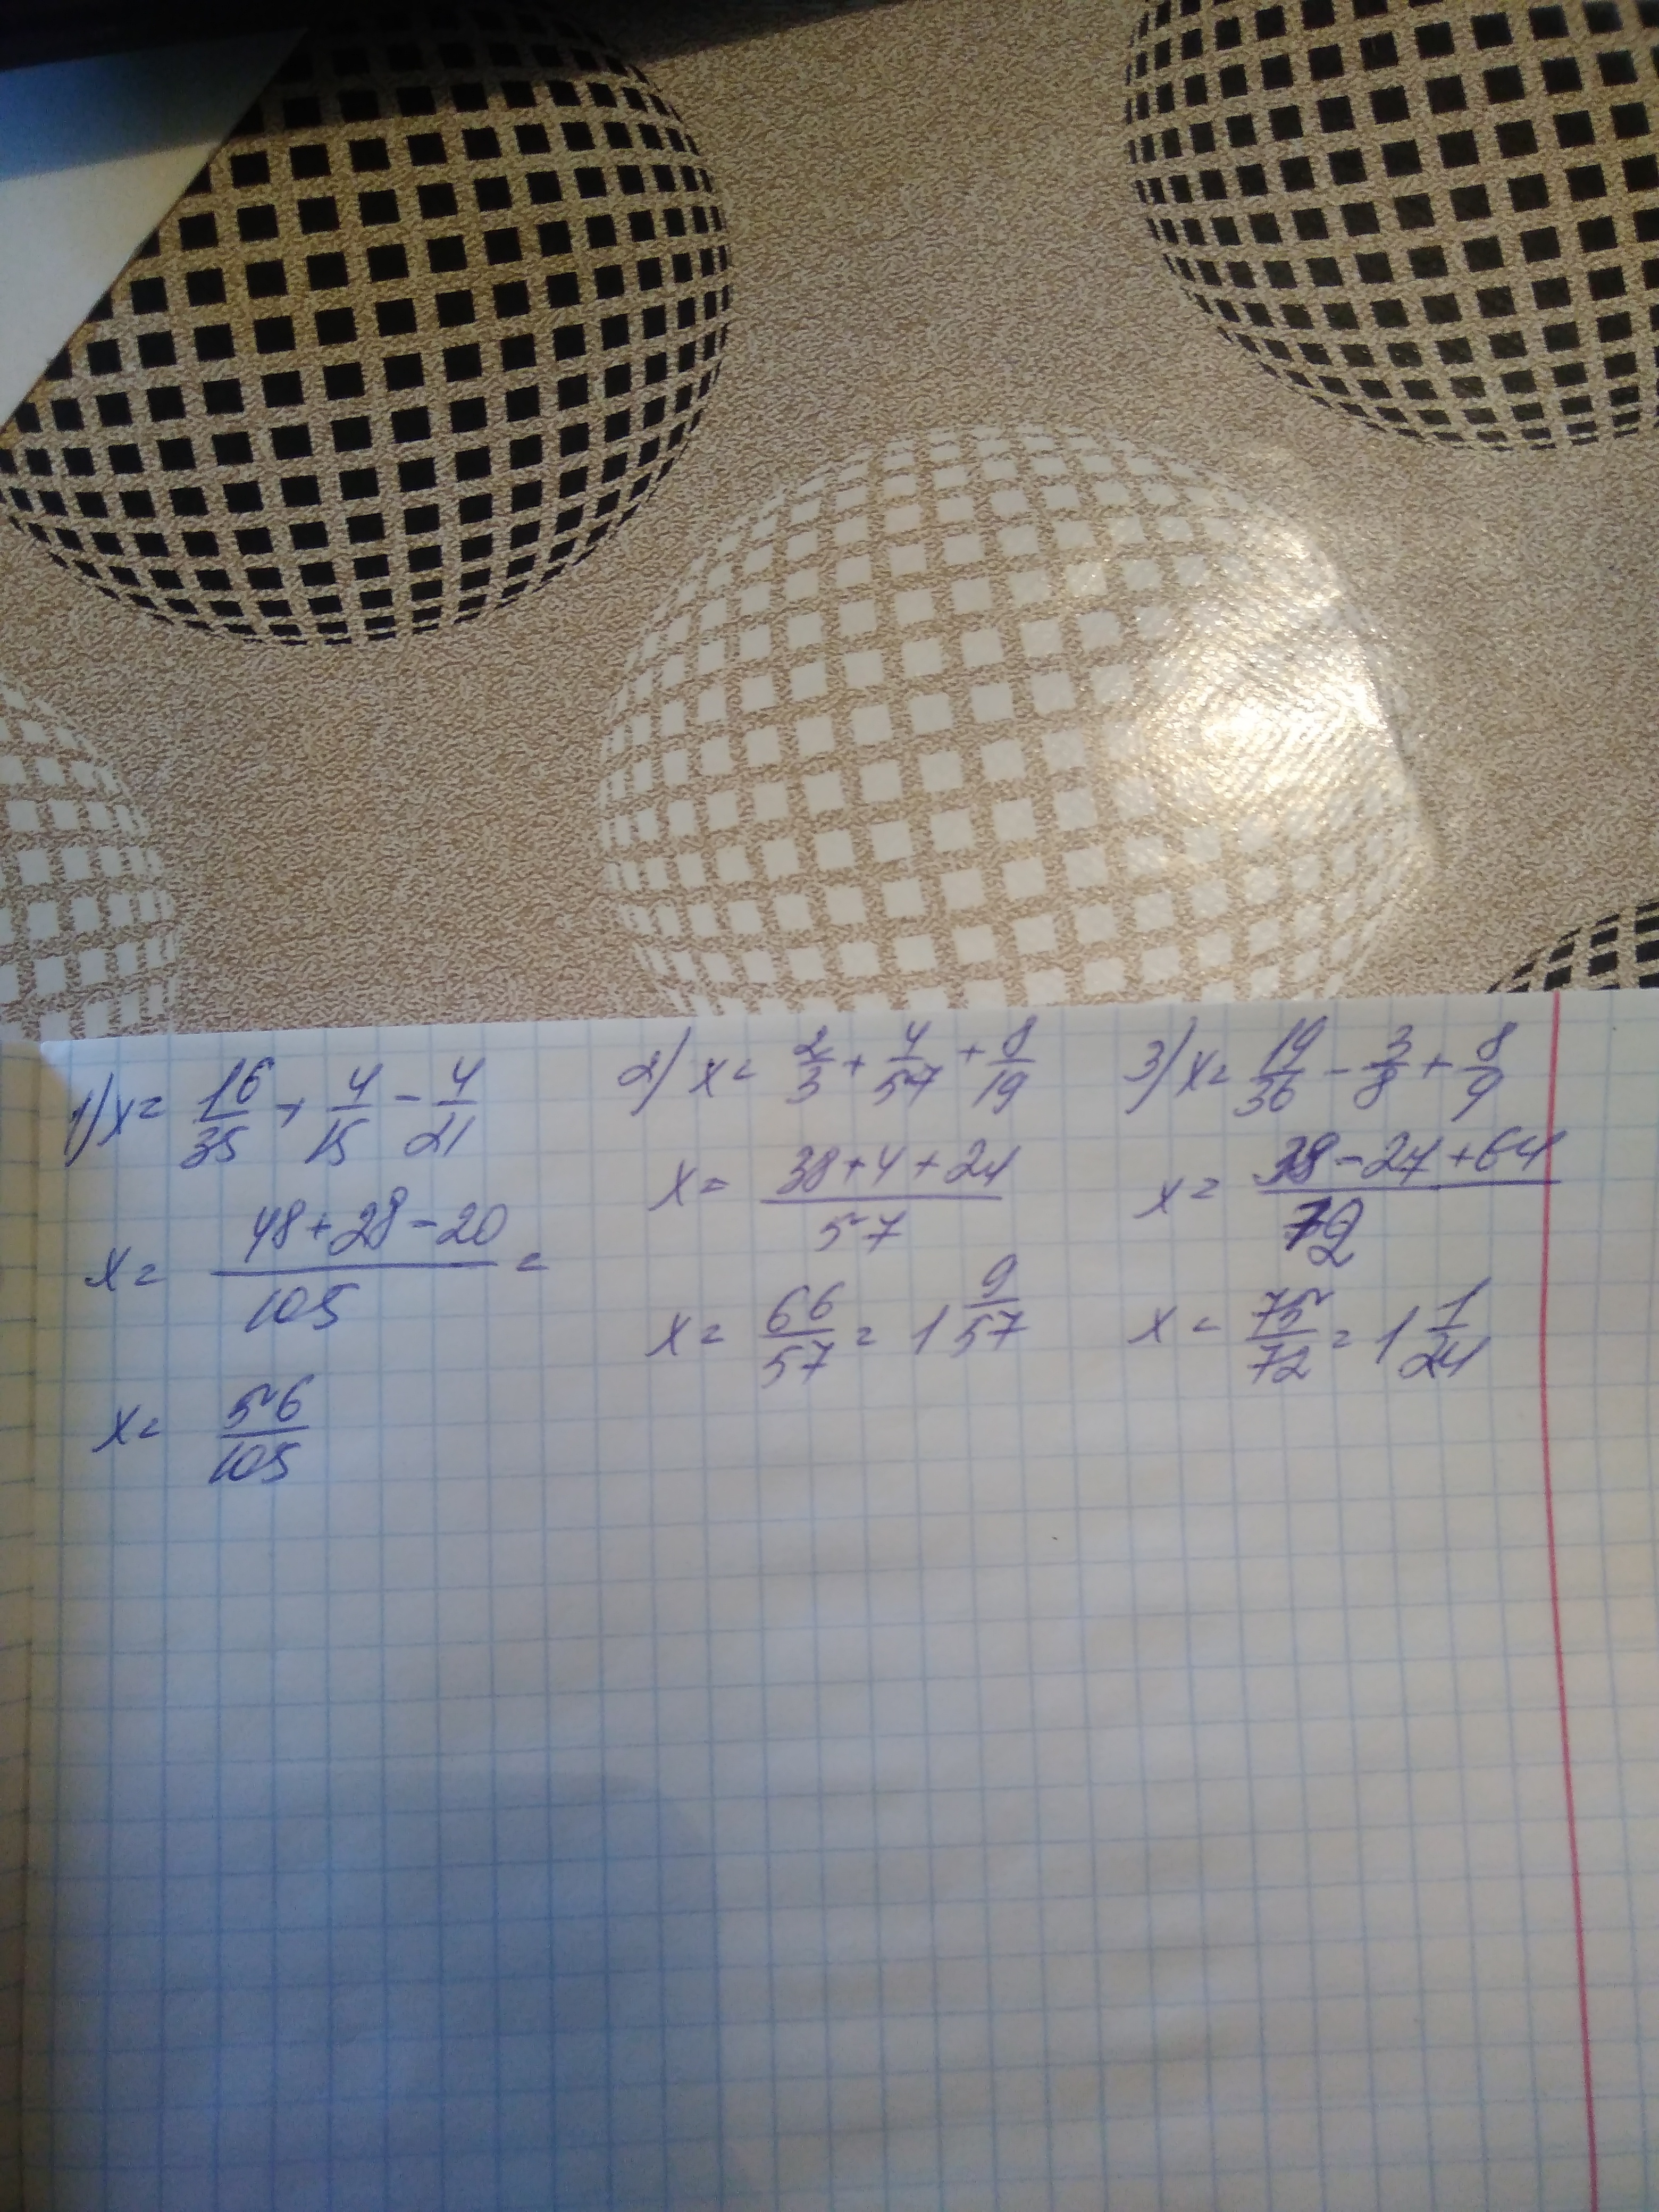 1) x = 16/35 + 4/15 - 4/21
x = (48+28-20)/105 =
x = 56/105
2) x = 2/3 + 4/57 + 8/19
x = (38+4+24)/57
x = 66/57 = 1 9/57
3) x = 19/36 - 3/8 + 8/9
x = (38-27+64)/72
x = 75/72 = 1 1/24